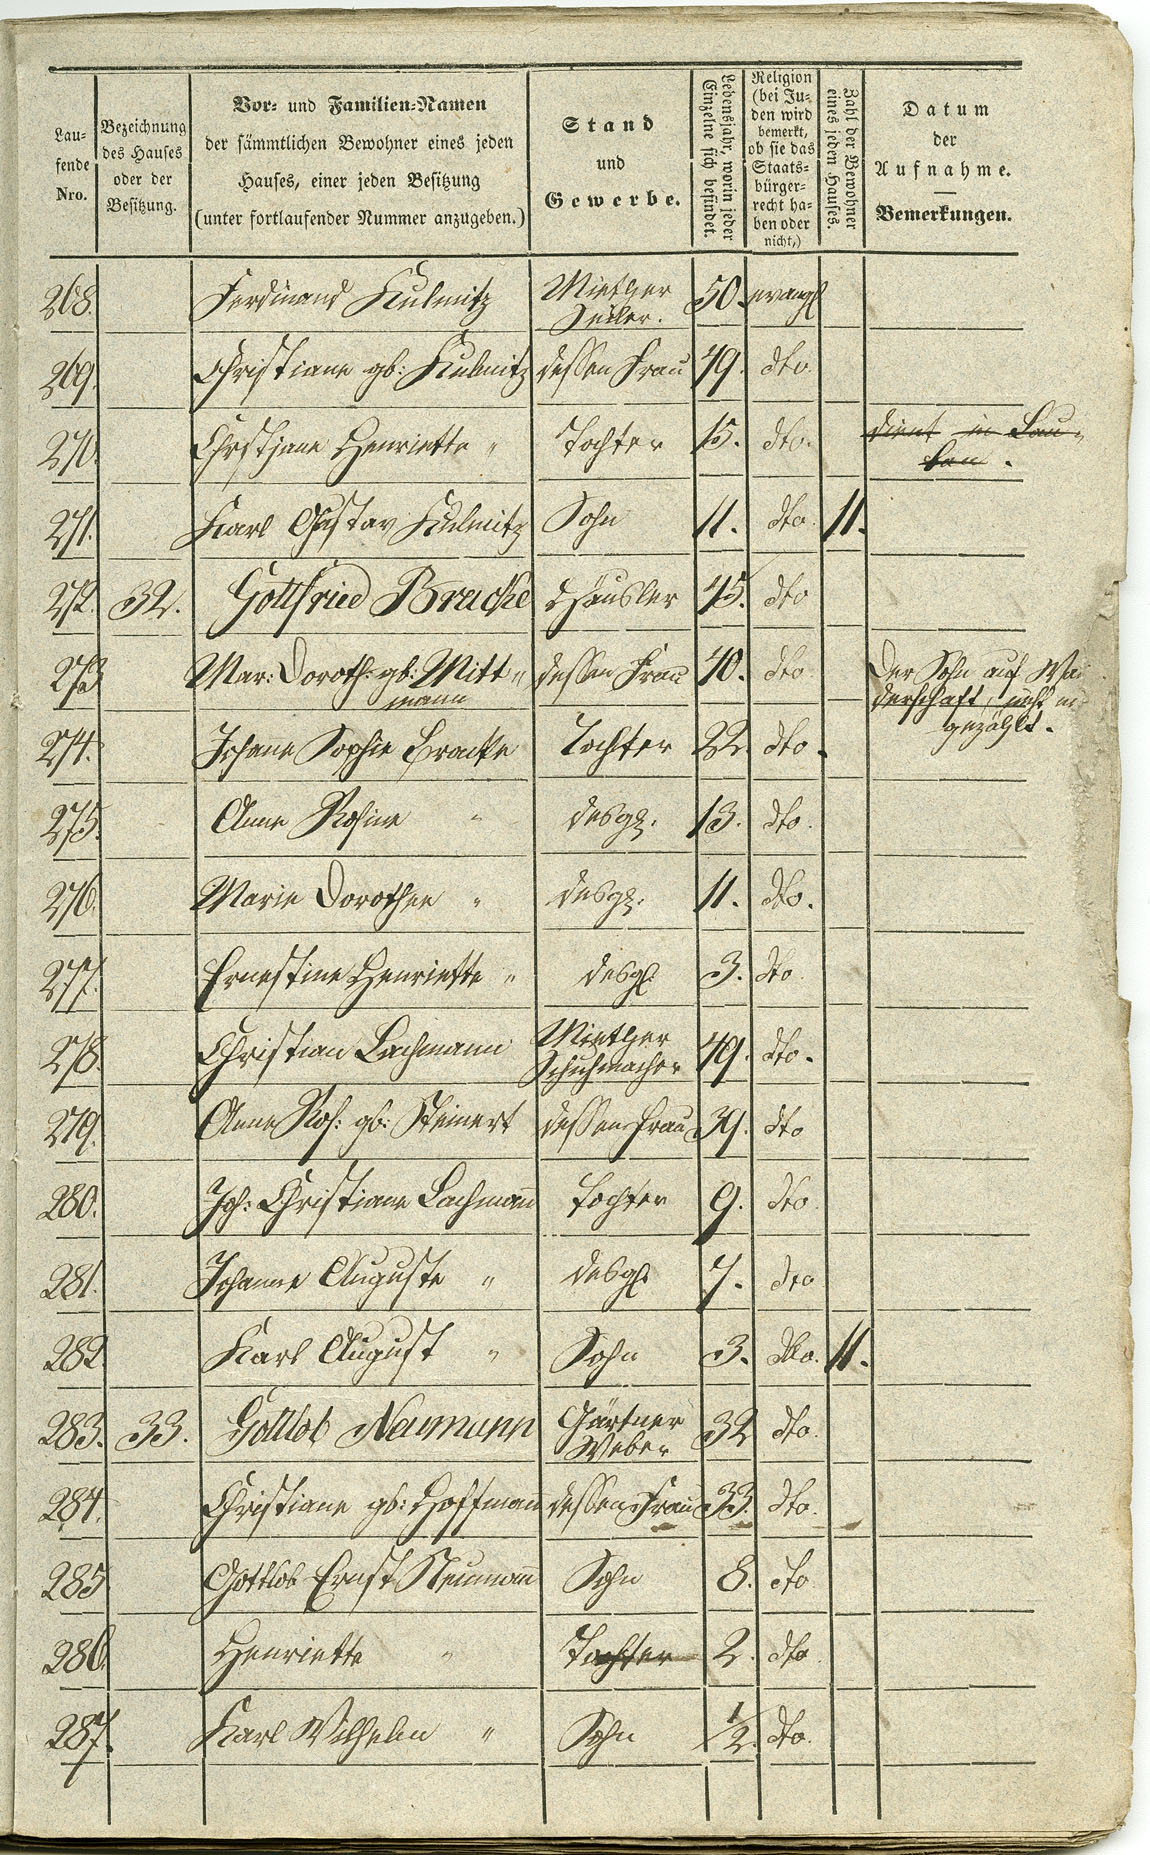 Lau-
fende
Nro.
Bezeichnung
des Hauses
oder der
Besitzung.
Vor- und Familien-Namen
der sämmtlichen Bewohner eines jeden
Hauses, einer jeden Besitzung
(unter fortlaufender Nummer anzugeben.)
Stand
und
Gewerbe.
Lebensjahr, worin jeder
Einzelne sich befindet.
Religion
(bei Ju-
den wird
bemerkt,
ob sie das
Staats-
bürger-
recht ha-
ben oder
nicht,)
Zahl der Bewohner
eines jeden Hauses.
Datum
der
Aufnahme.
Bemerkungen.
268. Ferdinand Kulmitz Miether 50. evangl
Seiler.
269. Christiane gb: Kulmitz dessen Frau 49. dto.
270. Christiane Henriette " Tochter 15. dto. dient in Lau-
ban.
271. Karl Gustav Kulmitz Sohn 11. dto. 11.
272. 32. Gottfried Bracke Häusler 45. dto
273 Mar: Doroth: gb: Mitt- dessen Frau 40. dto. Der Sohn auf
mann derschaft, nicht
gezählt.
274. Johane Sophie Bracke Tochter 22. dto.
275. Anne Rosine " desgl. 13. dto.
276. Marie Dorothee " desgl. 11. dto.
277. Ernestine Henriette " desgl. 3. dto.
278. Christian Lachmann Miether 49. dto.
Schuhmacher
279. Anne Ros: gb: Steinert dessen Frau 39. dto
280. Joh: Christiane Lachmann Tochter 9. dto.
281. Johanne Auguste " desgl. 7. dto
282. Karl August " Sohn 3. dto. 11.
283. 33. Gottlob Neumann Gärtner 32 dto.
Weber
284. Christiane gb: Hoffmann dessen Frau 33. dto.
285 Gottlob Ernst Neumann Sohn 8. dto
286. Henriette " Tochter 2. dto.
287. Karl Wilhelm " Sohn 1/2. dto.